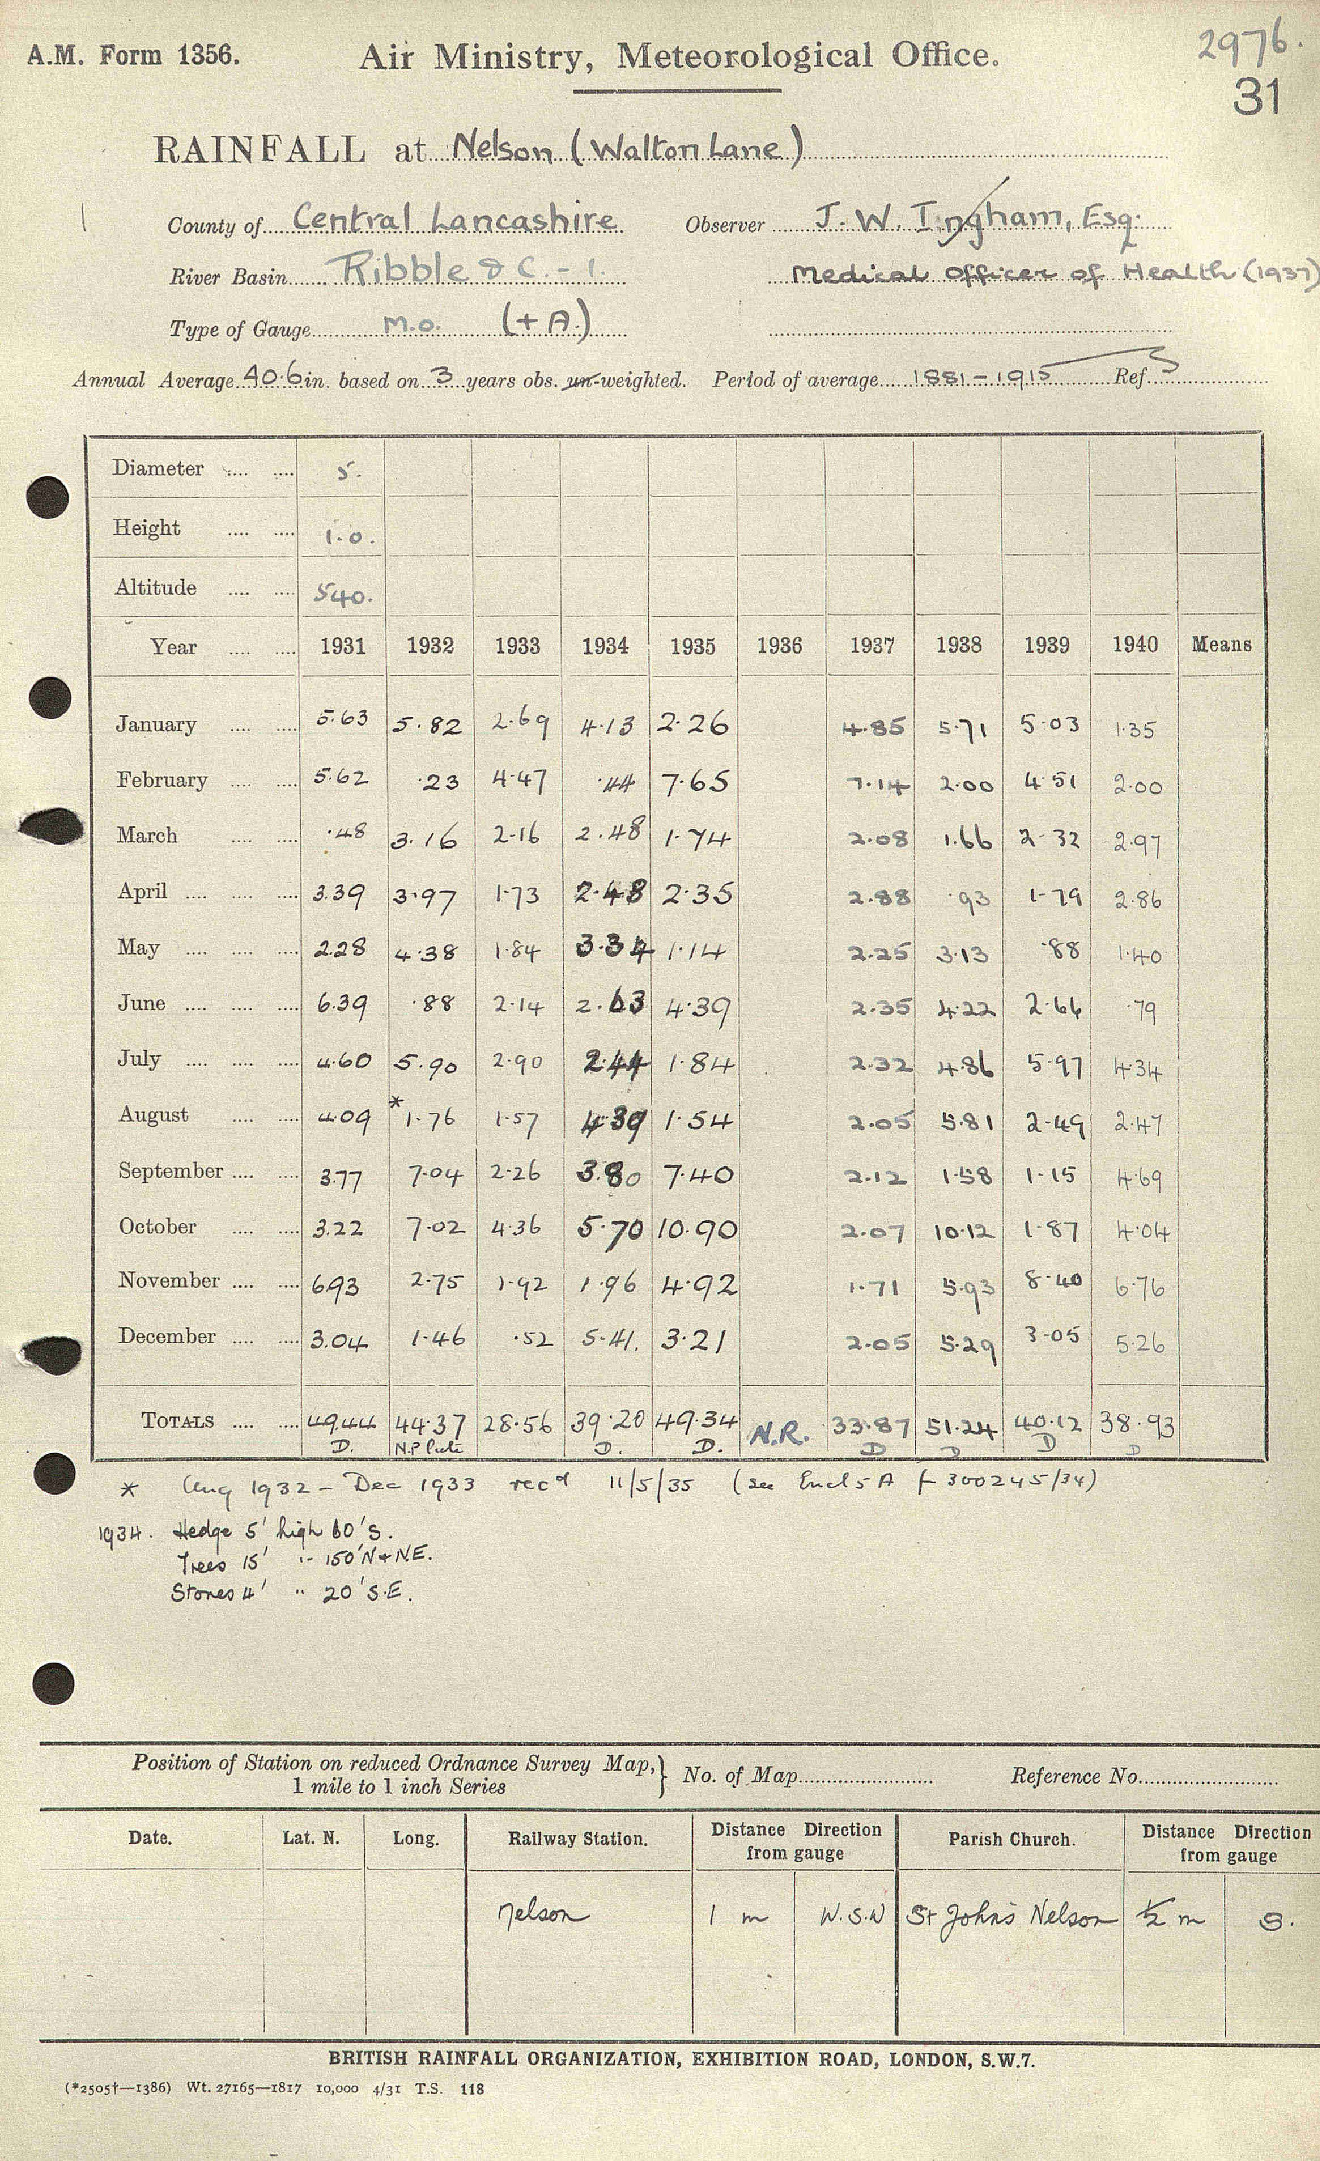 A.M. Form 1356. Air Ministry, Meteorological Office. 2976.
31
RAINFALL at Nelson (Walton Lane)
County of Central Lancashire Observer J. W. Ingham, Esq.
River Basin Ribble & C. - 1. Medical Officer of Health (1937)
Type of Gauge M.O. (+ A.)
Annual Average 40.6 in. based on 3 years obs. un-weighted. Period of average 1881-1915 Ref.
Diameter 5.
Height 1.0.
Altitude 540.
Year 1931 1932 1933 1934 1935 1936 1937 1938 1939 1940 Means
January 5.63 5.82 2.69 4.13 2.26 4.85 5.71 5.03 1.35
February 5.62 .23 4.47 .44 7.65 7.14 2.00 4.51 2.00
March .48 3.16 2.16 2.48 1.74 2.08 1.66 2.32 2.97
April 3.39 3.97 1.73 2.48 2.35 2.88 .93 1.79 2.86
May 2.28 4.38 1.84 3.34 1.14 2.25 3.13 .88 1.40
June 6.39 .88 2.14 2.63 4.39 2.35 4.22 2.66 .79
July 4.60 5.90 2.90 2.44 1.84 2.32 4.86 5.97 4.34
August 4.09 *1.76 1.57 4.39 1.54 2.05 5.81 2.49 2.47
September 3.77 7.04 2.26 3.80 7.40 2.12 1.58 1.15 4.69
October 3.22 7.02 4.36 5.70 10.90 2.07 10.12 1.87 4.04
November 6.93 2.75 1.92 1.96 4.92 1.71 5.93 8.40 6.76
December 3.04 1.46 .52 5.41. 3.21 2.05 5.29 3.05 5.26
TOTALS 49.44 44.37 28.56 39.20 49.34 N.R. 33.87 51.24 40.12 38.93
D. N.P. D. D. D D D D
* Aug 1932 - Dec 1933 recd 11/5/35 (see Encl 5A f 300245/34)
1934. Hedge 5' high 60'S.
Trees 15' " 150'N & N.E.
Stones 4' " 20'S.E.
Position of Station on reduced Ordnance Survey Map,
1 mile to 1 inch Series
No. of Map Reference No.
Date. Lat. N. Long. Railway Station. Distance Direction from gauge Parish Church. Distance Direction from gauge
Nelson 1 m W.S.W St John's Nelson ½ m S.
BRITISH RAINFALL ORGANIZATION, EXHIBITION ROAD, LONDON, S.W.7.
(*2505†—1386) Wt. 27165—1817 10,000 4/31 T.S. 118